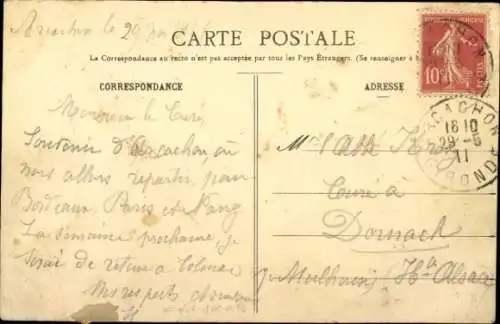 Arcachon le 29
CARTE POSTALE
La Correspondance au recto n'est pas acceptée par tous les Pays Étrangers. (Se renseigner à
CORRESPONDANCE
ADRESSE
10c
ARCACHON
18 10
29-5
11
GIRONDE
Monsieur le Curé,
Souvenir d'Arcachon, où
nous allons repartir, pour
Bordeaux, Paris et
La semaine prochaine, je
serai de retour à Colmar
Mes respects
Mr l'Abbé
Curé à
Dornach
p. Mulhouse, Hte Alsace